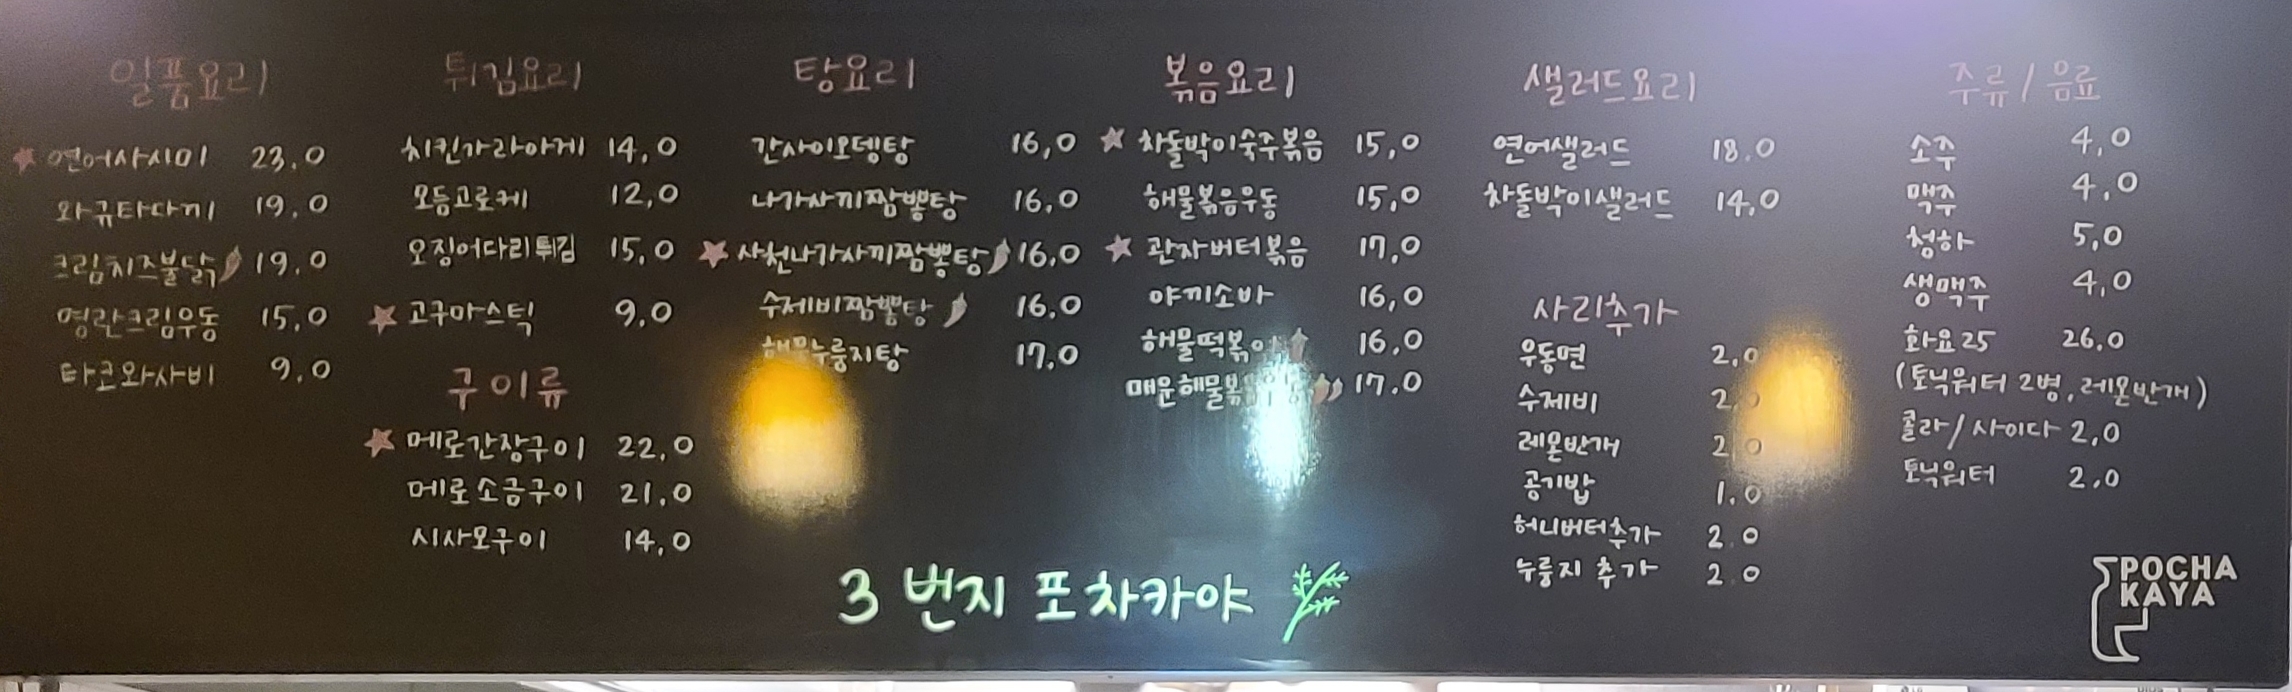 일품요리
연어사시미 23.0
와규타다끼 19.0
크림치즈불닭 19.0
명란크림우동 15.0
타코와사비 9.0
튀김요리
치킨가라아게 14,0
모듬고로케 12,0
오징어다리튀김 15,0
고구마스틱 9.0
구이류
메로간장구이 22,0
메로소금구이 21,0
시사모구이 14,0
탕요리
간사이오뎅탕 16,0
나가사끼짬뽕탕 16,0
사천나가사끼짬뽕탕 16,0
수제비짬뽕탕 16.0
해물누룽지탕 17,0
볶음요리
차돌박이숙주볶음 15,0
해물볶음우동 15,0
관자버터볶음 17,0
야끼소바 16,0
해물떡볶이 16,0
매운해물볶음우동 17.0
샐러드요리
연어샐러드 18.0
차돌박이샐러드 14,0
사리추가
우동면 2.0
수제비 2.0
레몬반개 2.0
공기밥 1.0
허니버터추가 2.0
누룽지 추가 2.0
주류/음료
소주 4,0
맥주 4,0
청하 5,0
생맥주 4,0
화요25 26.0
(토닉워터 2병, 레몬반개)
콜라/사이다 2,0
토닉워터 2.0
3번지 포차카야
POCHA
KAYA